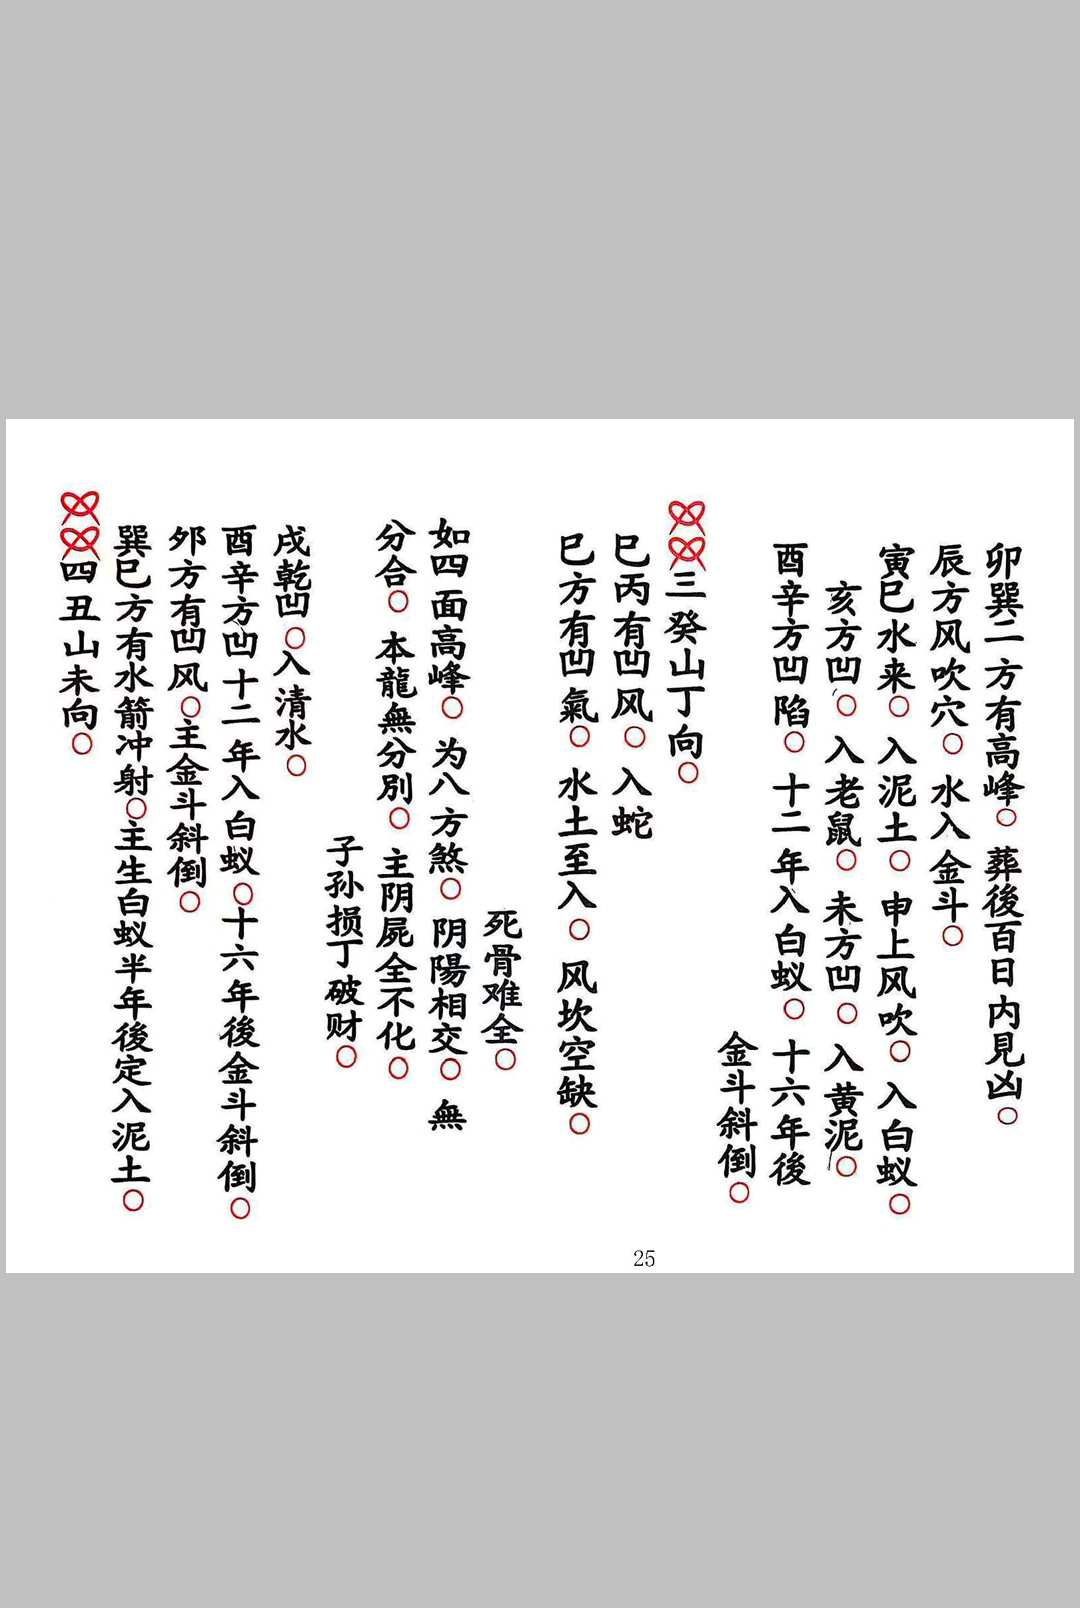 卯巽二方有高峰○葬後百日内見凶○
辰方风吹穴○水入金斗○
寅巳水来○入泥土○申上风吹○入白蚁○
亥方凹○入老鼠○未方凹○入黄泥○
酉辛方凹陷○十二年入白蚁○十六年後
金斗斜倒○
三癸山丁向○
巳丙有凹风○入蛇
巳方有凹氣○水土至入○风坎空缺○
死骨难全○
如四面高峰○为八方煞○阴陽相交○無
分合○本龍無分別○主阴屍全不化○
子孙损丁破财○
戌乾凹○入清水○
酉辛方凹十二年入白蚁○十六年後金斗斜倒○
邜方有凹风○主金斗斜倒○
巽巳方有水箭冲射○主生白蚁半年後定入泥土○
四丑山未向○
25